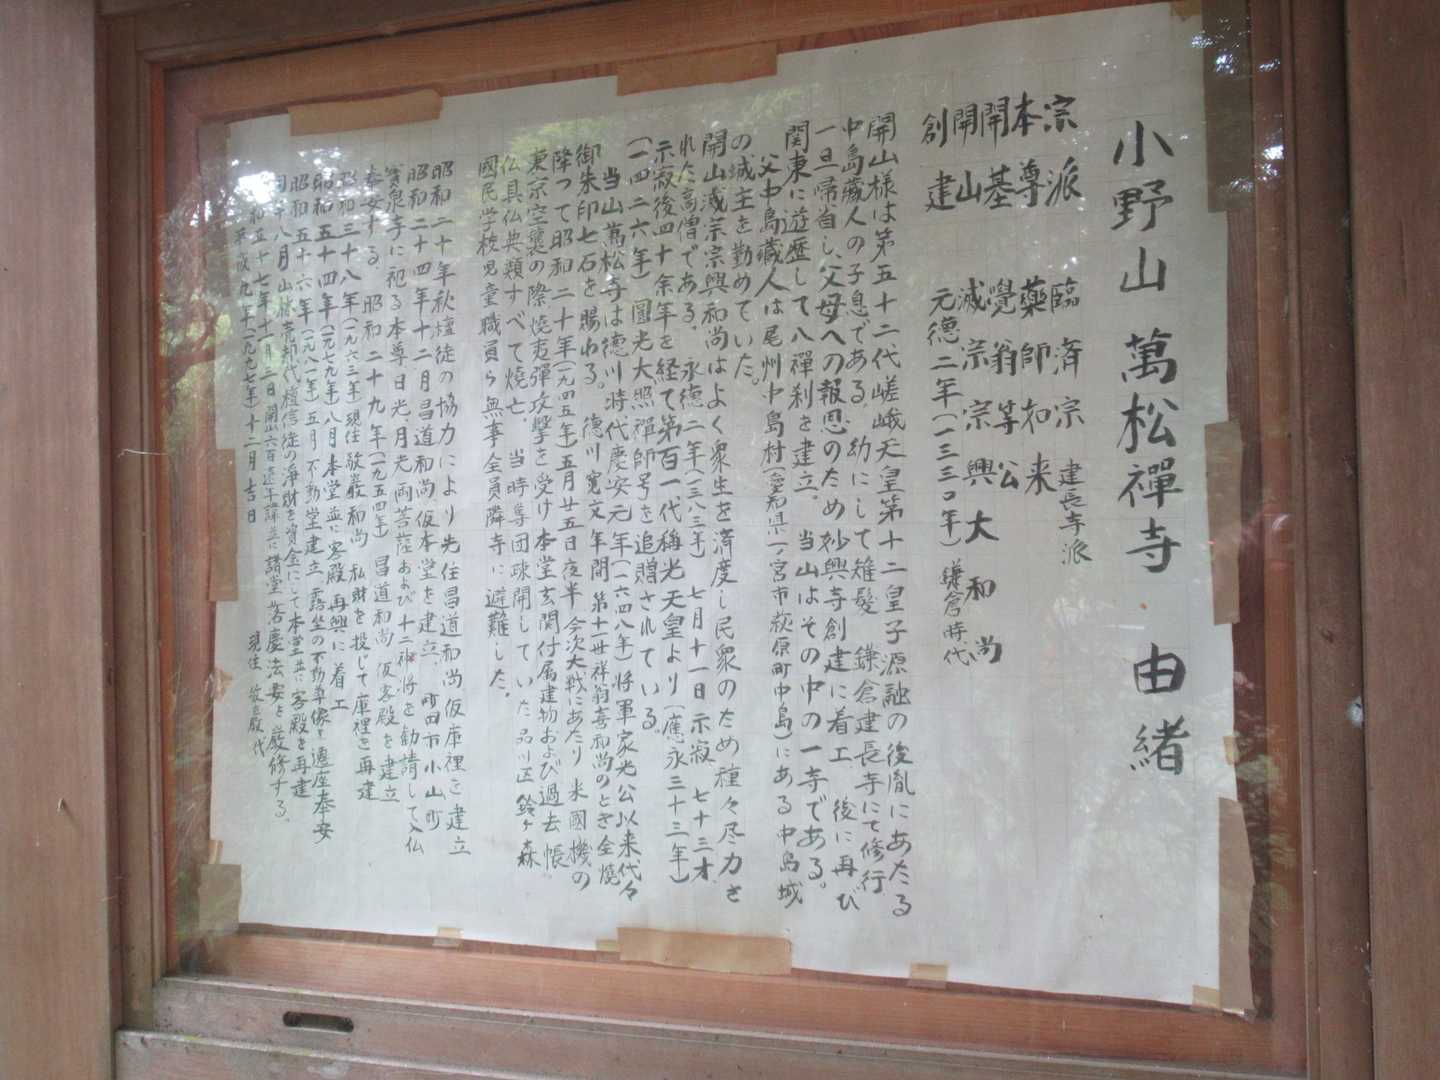 小野山 萬松禪寺 由緒
宗派 臨済宗 建長寺派
本尊 藥師如来
開基 覺翁等公
開山 滅宗宗興大和尚
創建 元徳二年(一三三〇年)鎌倉時代
開山様は第五十二代嵯峨天皇第十二皇子源融の後胤にあたる
中島蔵人の子息である。幼にして雉髮 鎌倉建長寺にて修行
一旦帰省し、父母への報恩のため妙興寺創建に着工、後に再び
関東に遊歴して八禪刹を建立。当山はその中の一寺である。
父中島蔵人は尾州中島村(愛知県一ノ宮市萩原町中島)にある中島城
の城主を勤めていた。
開山滅宗宗興和尚はよく衆生を済度し民衆のため種々尽力さ
れた高僧である。永徳二年(一三八三年)七月十一日示寂 七十三才
示寂後四十余年を経て第百一代稱光天皇より(應永三十三年)
(一四二六年)圓光大照禪師号を追贈されている。
当山萬松寺は徳川時代慶安元年(一六四八年)将軍家光公以来代々
御朱印七石を賜わる。徳川寛文年間第十一世祥翁喜和尚のとき全燒
降つて昭和二十年(一九四五年)五月廿五日夜半 今次大戦にあたり 米國機の
東京空襲の際燒夷彈攻撃を受け本堂玄関付属建物および過去帳
仏具仏典類すべて燒亡、当時學団疎開していた品川区鈴ヶ森
國民学校児童職員ら無事全員隣寺に避難した。
昭和二十年秋檀徒の協力により先住昌道和尚仮庫裡を建立
昭和二十四年十二月昌道和尚仮本堂を建立、町田市小山町
寳泉寺に祀る本尊日光、月光両菩薩および十二神将を勧請して入仏
奉安する。昭和二十九年(一九五四年)昌道和尚仮客殿を建立
昭和三十八年(一九六三年)現住敬嚴和尚 私財を投じて庫裡を再建
昭和五十四年(一九七九年)八月本堂並に客殿再興に着工
昭和五十六年(一九八一年)五月不動堂建立 露坐の不動尊像を遷座奉安
同年八月山林売却代檀信徒の淨財を資金にして本堂並に客殿を再建
昭和五十七年十一月三日開山六百遠年諱並に諸堂落慶法要を厳修する。
平成九年(一九九七年)十二月吉日
現住 敬嚴代